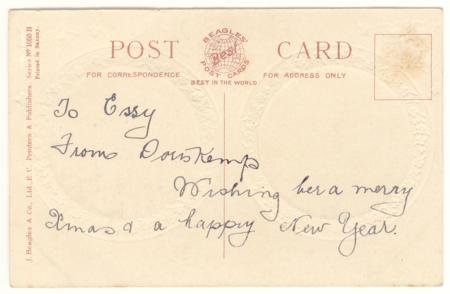 POST CARD
BEAGLES'
Best
POST CARDS
FOR CORRESPONDENCE
BEST IN THE WORLD
FOR ADDRESS ONLY
J. Beagles & Co., Ltd., E.C. Printers & Publishers. Series No
Printed in Saxony.
To Essy
From
Wishing her a merry
Xmas & a happy New Year.